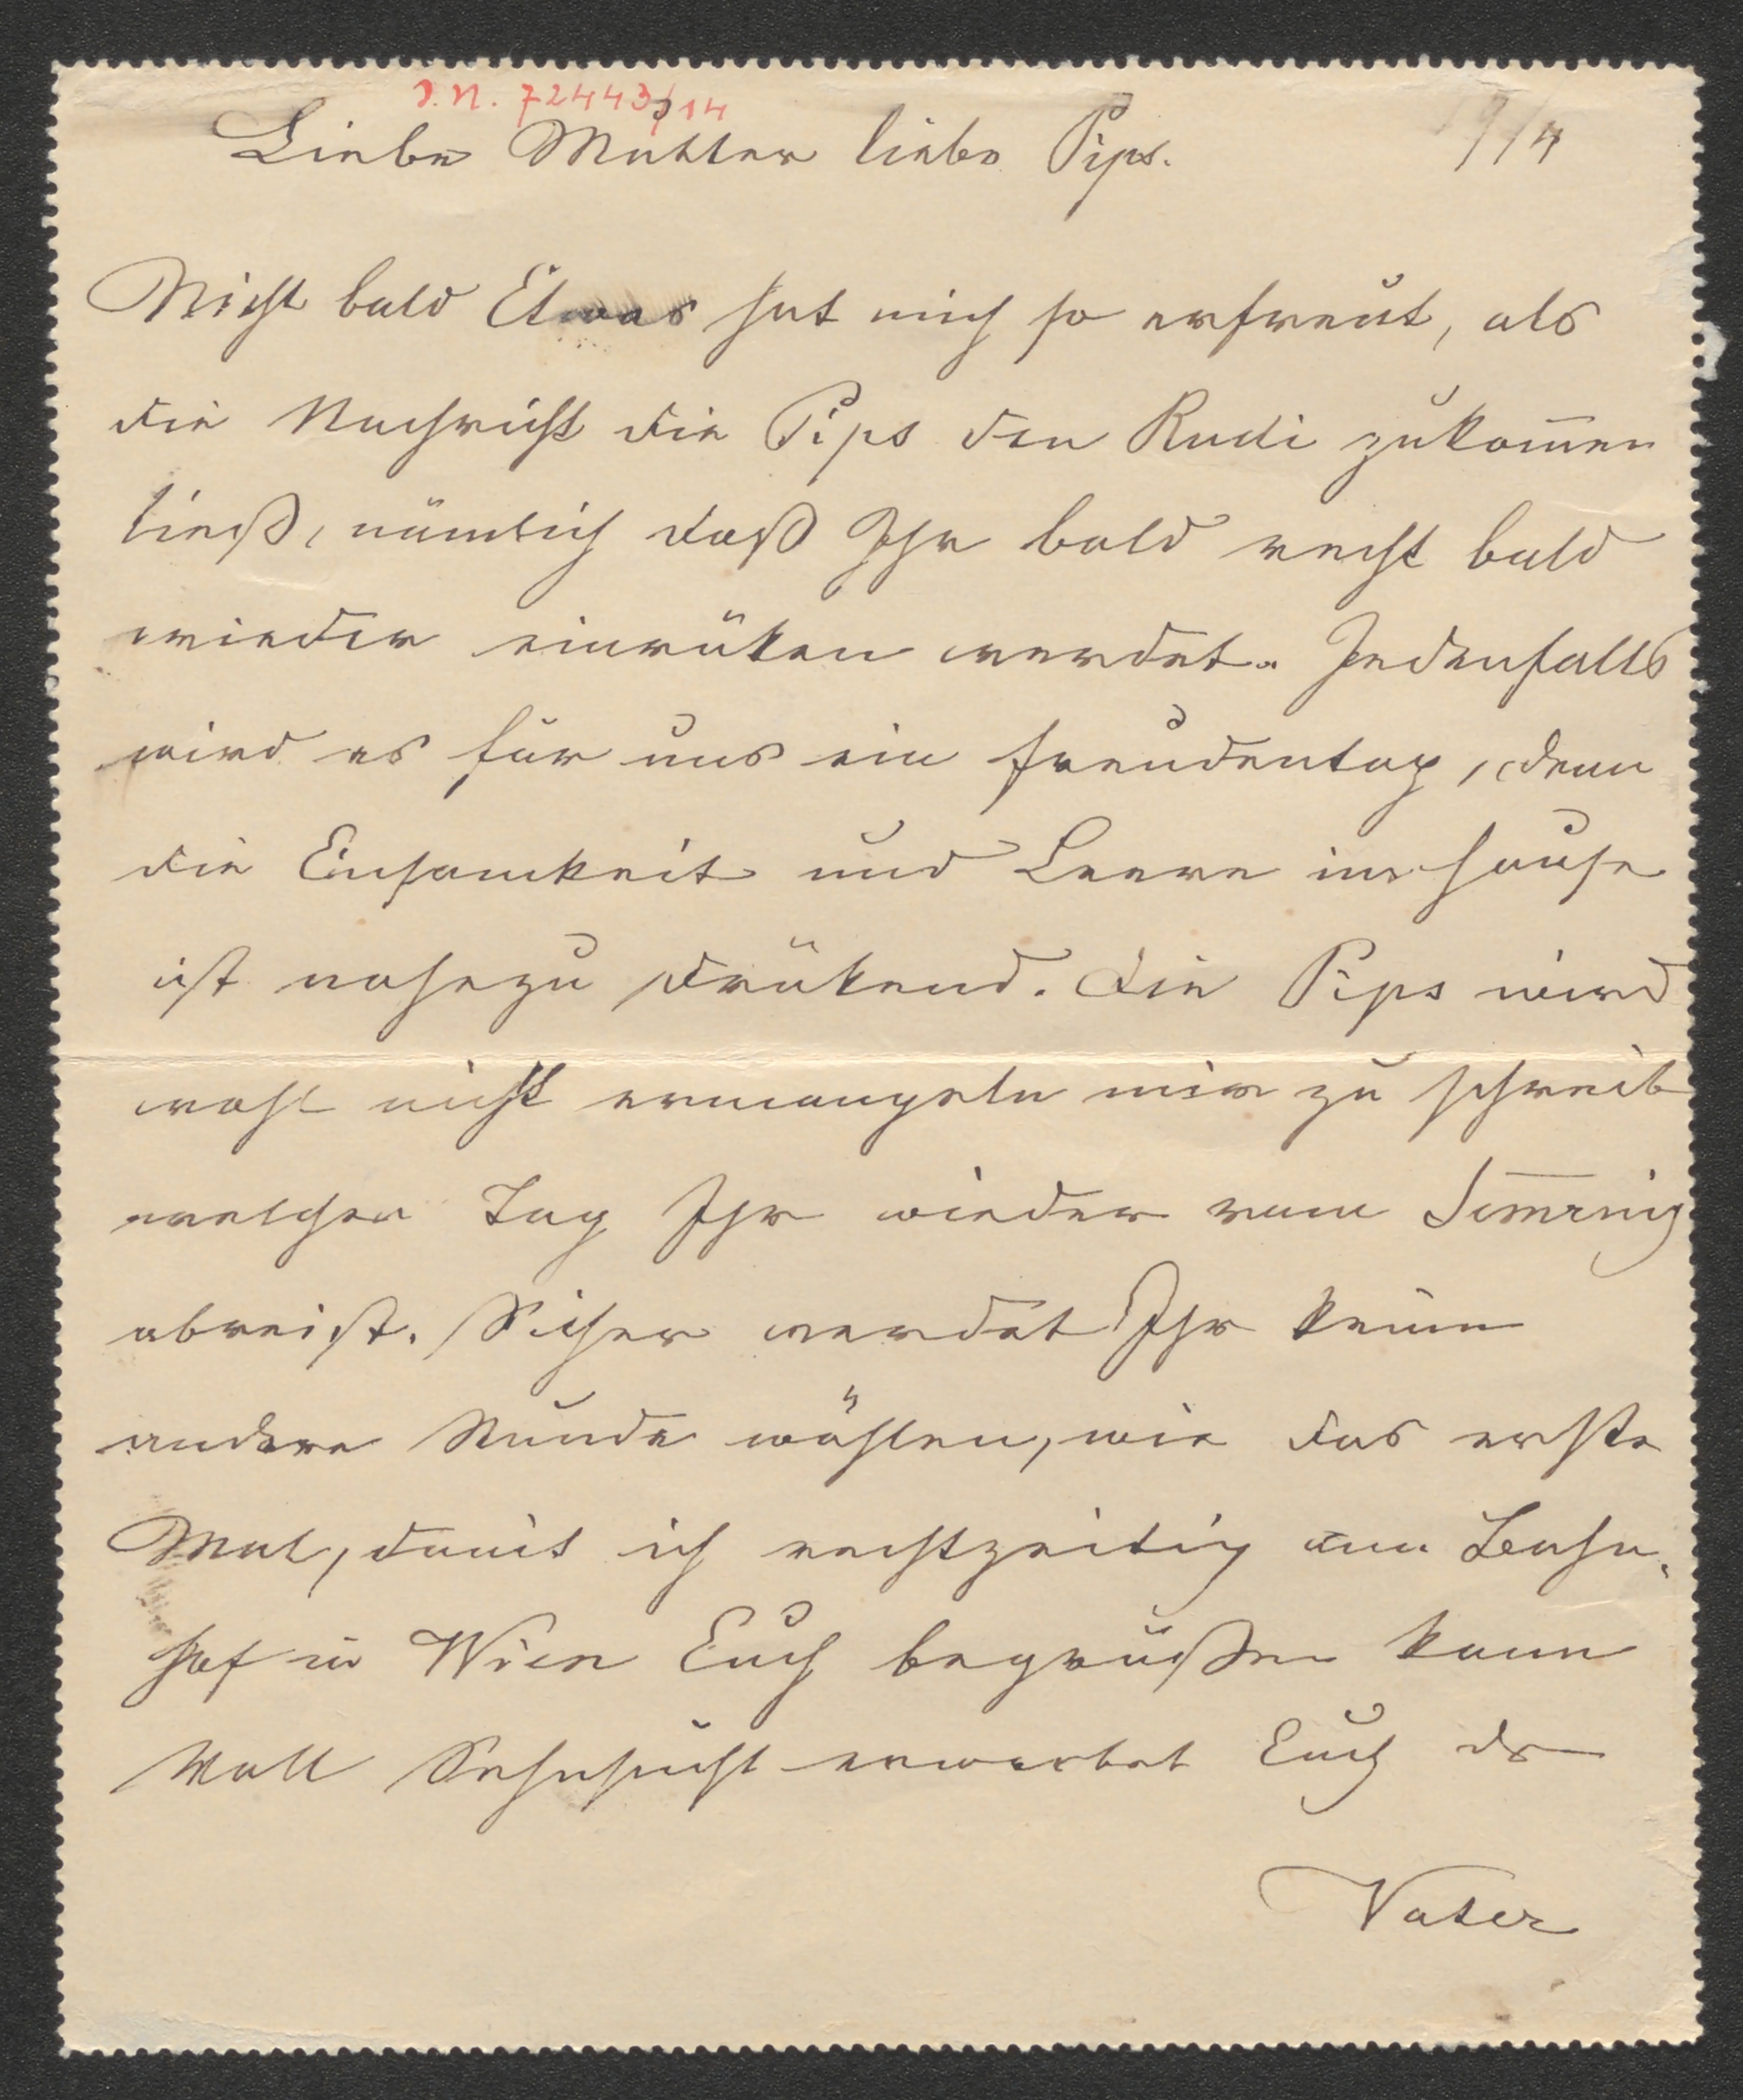 J.N. 72443/14
Liebe Mutter liebe Pips. 19/4
Nicht bald Etwas hat mich so erfreut, als
die Nachricht die Pips den Rudi zukom̅en
ließ, nämlich daß Ihr bald recht bald
wieder einrüken werdet. Jedenfalls
wird es für uns ein Freudentag, denn
die Einsamkeit und Leere im Hause
ist nahezu drükend. Die Pips wird
wohl nicht ermangeln mir zu schreib
welchen Tag Ihr wieder vom Sem̅ring
abreist. Sicher werdet Ihr keine
andere Stunde wählen, wie das erste
Mal, damit ich rechtzeitig am Bahn,
hof in Wien Euch begrüßen kann
Voll Sehnsucht erwartet Euch dr
Vater